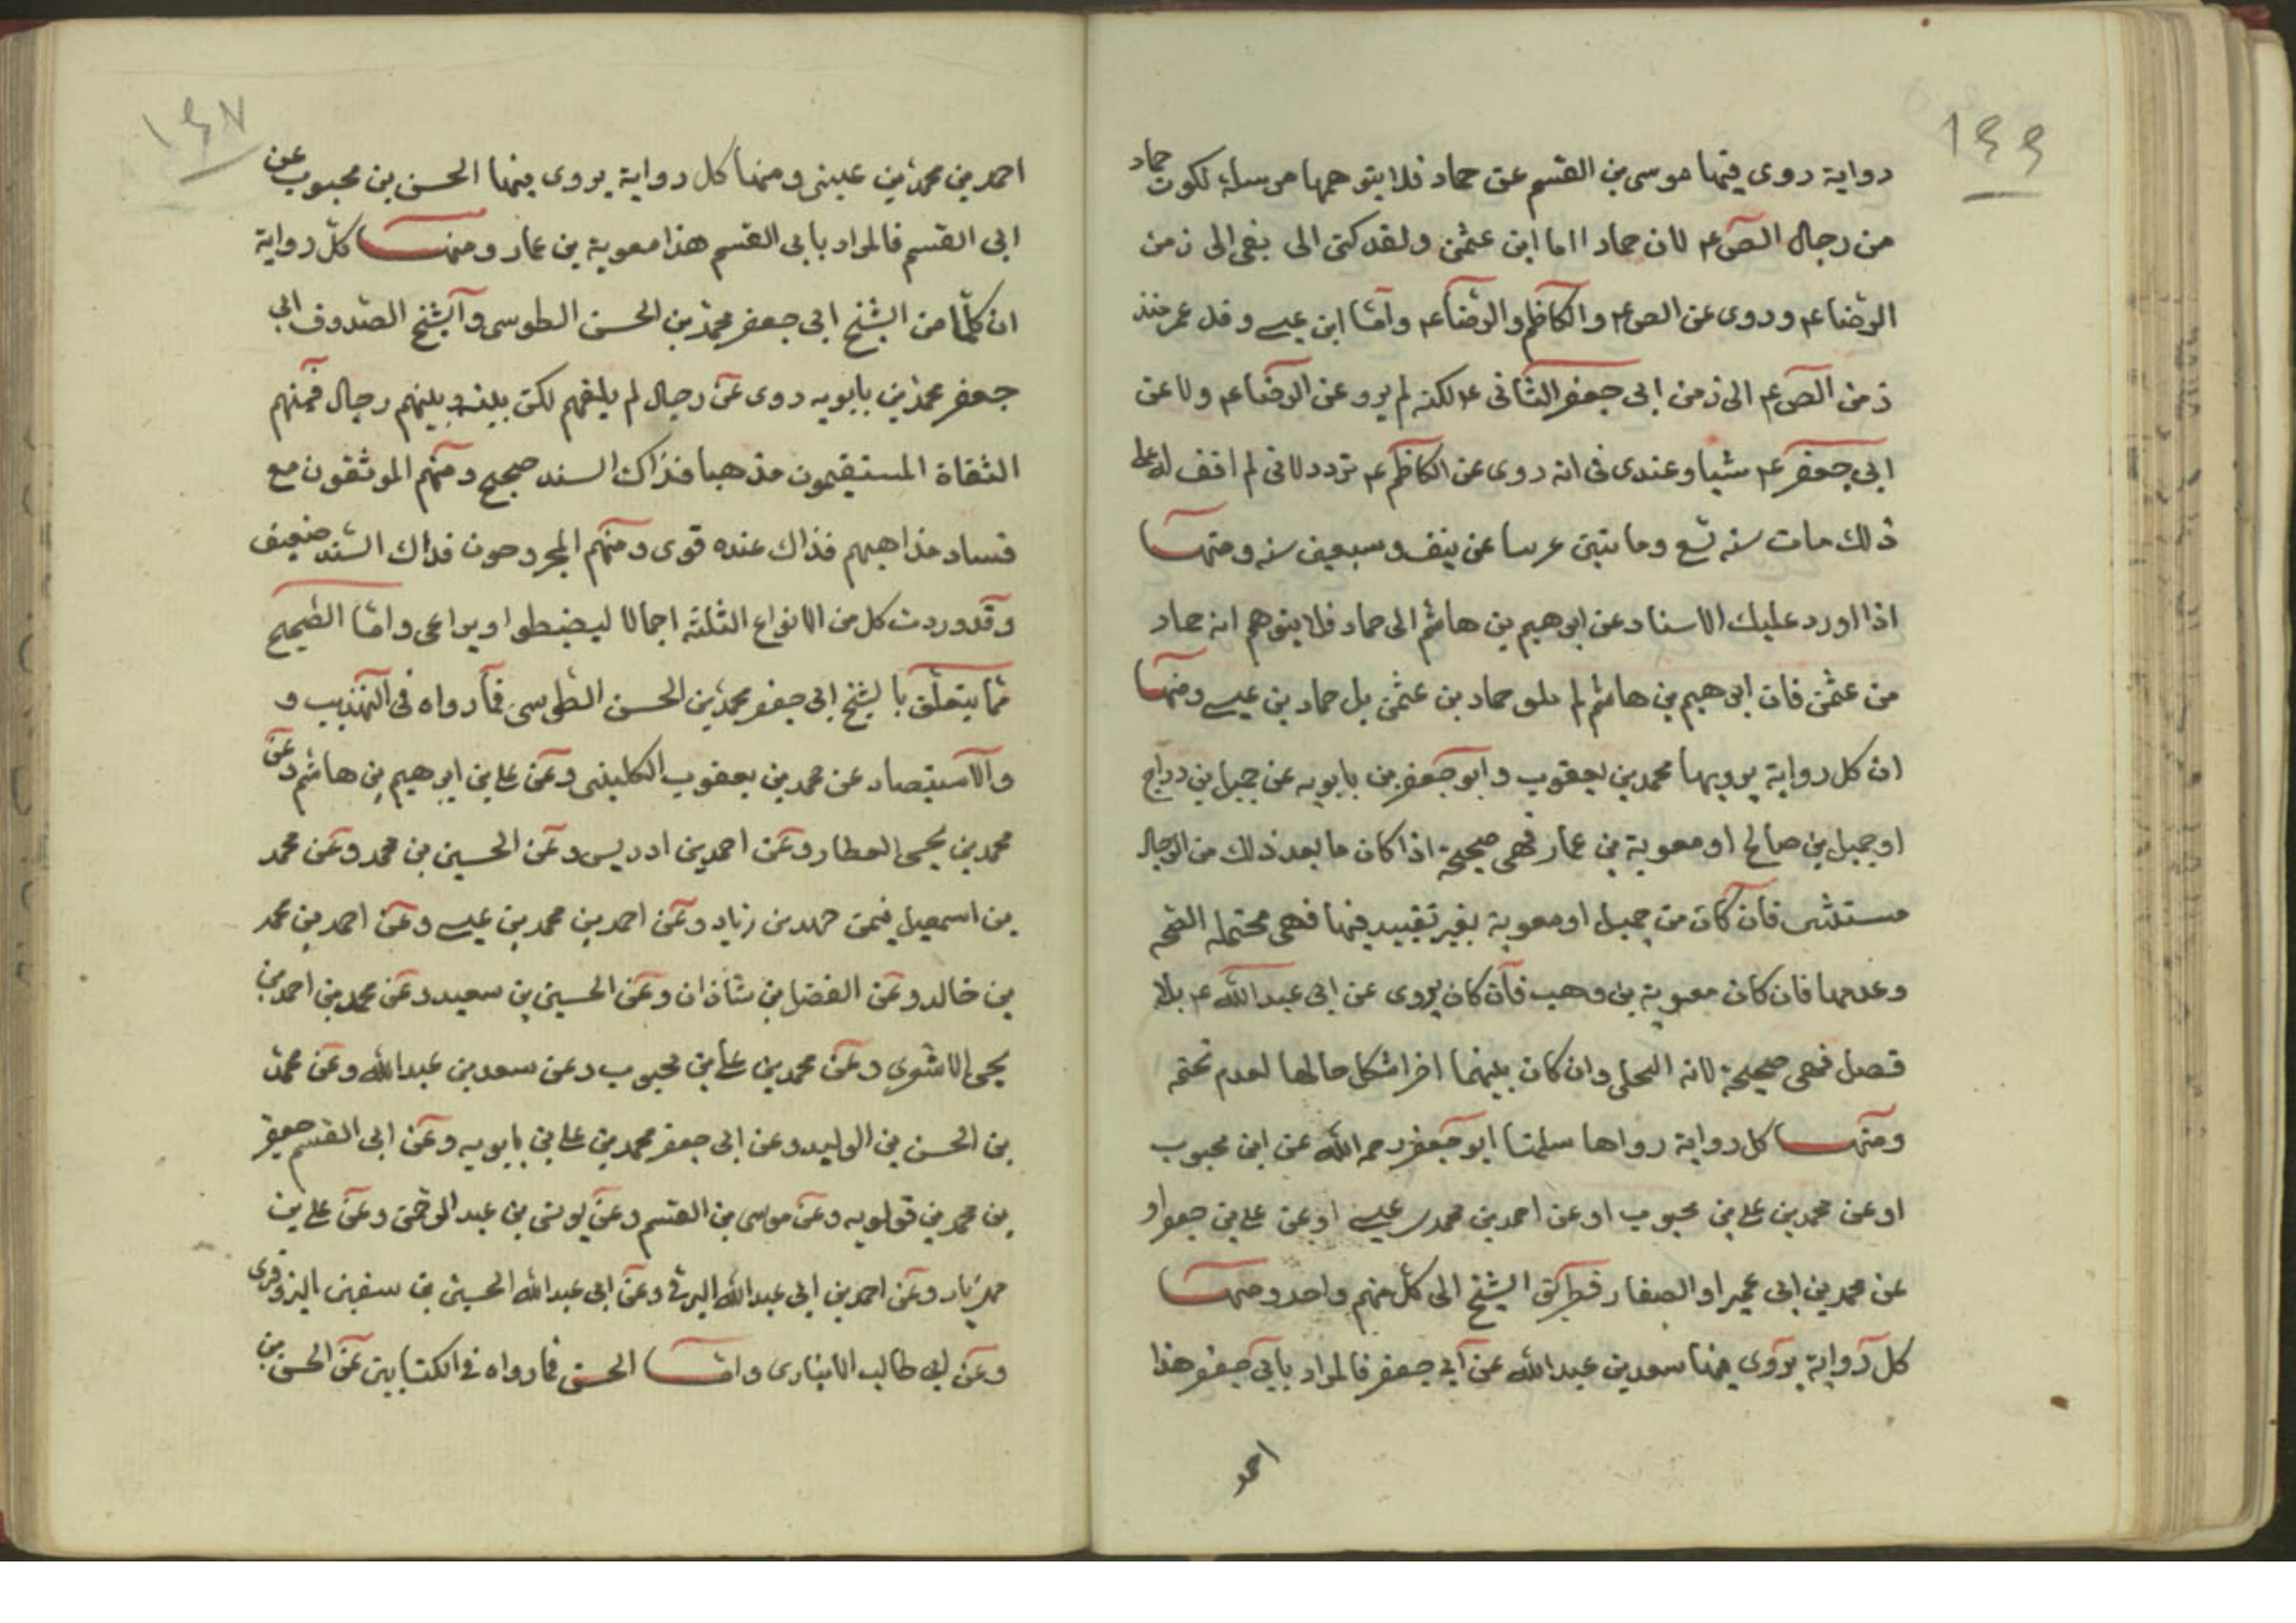 ١٤٤
رواية روى فيها موسى بن القسم عن حماد فلا يتوهمها مرسلة لكون حماد
من رجال الص ع لان حماد اما ابن عثمن ولقد بقى الى زمن
الرضا ع وروى عن الص ع والكاظم والرضا ع واما ابن عيسى وقد عمر منذ
زمن الص ع الى زمن ابى جعفر الثانى ع لكنه لم يرو عن الرضا ع ولا عن
ابى جعفر ع شيا وعندى فى انه روى عن الكاظم ع تردد لانى لم اقف له على
ذلك مات سنه تسع وماتين عن نيف وسبعين سنه ومنها
اذا اورد عليك الاسناد عن ابرهيم بن هاشم الى حماد فلا يتوهم انه حماد
من عثمن فان ابرهيم بن هاشم لم يلق حماد بن عثمن بل حماد بن عيسى ومنها
ان كل رواية يرويها محمد بن يعقوب وابو جعفر بن بابويه عن جميل بن دراج
او جميل بن صالح او معوية بن عمار فهى صحيحة اذا كان ما بعد ذلك من الرجال
مستثنى فان كان من جميل او معوية بغير تقييد فيها فهى محتملة الصحه
وعدمها فان كان معوية بن وهب فان كان يروى عن ابى عبد الله ع بلا
فصل فهى صحيحة لانه البجلى وان كان بينهما اخر اشكل حالها لعدم تحتم
ومنها كل رواية رواها ابو جعفر رحمه الله عن ابن محبوب
او عن محمد بن على بن محبوب او عن احمد بن محمد بن عيسى او عن على بن جعفر او
عن محمد بن ابى عمير او الصفار الشيخ الى كل منهم واحد ومنها
كل رواية يروى فيها سعد بن عبد الله عن ابى جعفر فالمراد بابى جعفر هذا
احمد
١٤٧
احمد بن محمد بن عيسى ومنها كل رواية يروى فيها الحسن بن محبوب عن
ابى القسم فالمراد بابى القسم هذا معوية بن عمار ومنها كل رواية
ان كلا من الشيخ ابى جعفر محمد بن الحسن الطوسى والشيخ الصدوق ابى
جعفر محمد بن بابويه روى عن رجال لم يلقهم لكن بينه وبينهم رجال فمنهم
الثقاة المستقيمون مذهبا فذاك السند صحيح ومنهم الموثقون مع
فساد مذاهبهم فذاك عنده قوى ومنهم المجروحون فذاك السند ضعيف
وقد وردت كل من الانواع الثلثة اجمالا ليضبطوا ويراعى واما الصحيح
مما يتعلق بالشيخ ابى جعفر محمد بن الحسن الطوسى فما رواه فى التهذيب و
والاستبصار عن محمد بن يعقوب الكلينى وعن على بن ابرهيم بن هاشم وعن
محمد بن يحيى العطار وعن احمد بن ادريس وعن الحسين بن محمد وعن محمد
بن اسمعيل بن زياد وعن احمد بن محمد بن عيسى وعن احمد بن محمد
بن خالد وعن الفضل بن شاذان وعن الحسين بن سعيد وعن محمد بن احمد بن
يحيى الاشعرى وعن محمد بن على بن محبوب وعن سعد بن عبد الله وعن محمد
بن الحسن بن الوليد وعن ابى جعفر محمد بن على بن بابويه وعن ابى القسم جعفر
بن محمد بن قولويه وعن موسى بن القسم وعن يونس بن عبد الرحمن وعن على بن
مهزيار وعن احمد بن ابى عبد الله البرقى وعن ابى عبد الله الحسين بن سفين البزوفرى
وعن ابى طالب الانبارى واما الحسن فما رواه فى الكتابين عن الحسن بن